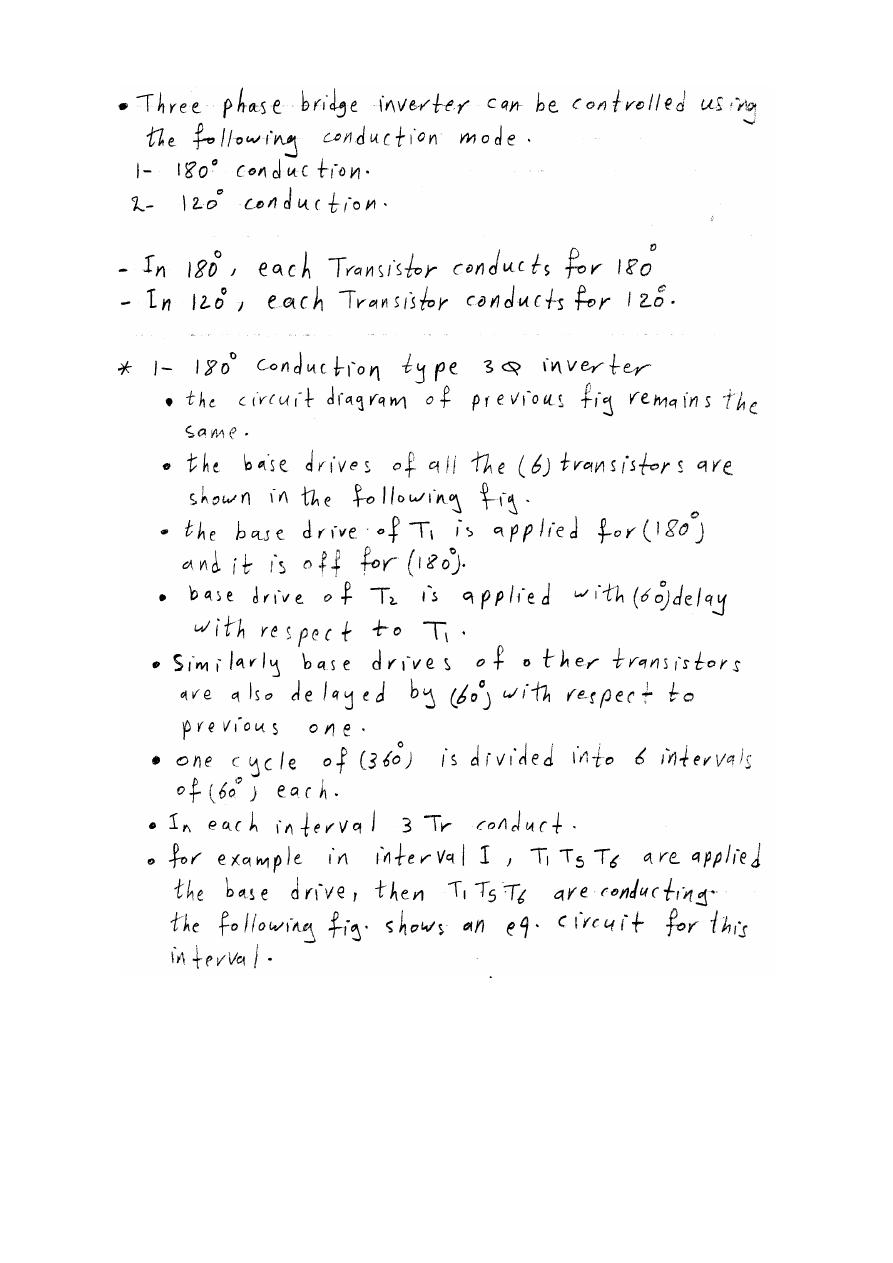 • Three phase bridge inverter can be controlled using
the following conduction mode.
1- 180° conduction.
2- 120° conduction.
- In 180°, each Transistor conducts for 180°
- In 120°, each Transistor conducts for 120°.
* 1- 180° conduction type 3φ inverter
• the circuit diagram of previous fig remains the
same.
• the base drives of all the (6) transistors are
shown in the following fig.
• the base drive of T1 is applied for (180°)
and it is off for (180°).
• base drive of T2 is applied with (60°) delay
with respect to T1.
• Similarly base drives of other transistors
are also delayed by (60°) with respect to
previous one.
• one cycle of (360°) is divided into 6 intervals
of (60°) each.
• In each interval 3 Tr conduct.
• for example in interval I, T1 T5 T6 are applied
the base drive, then T1 T5 T6 are conducting.
the following fig. shows an eq. circuit for this
interval.